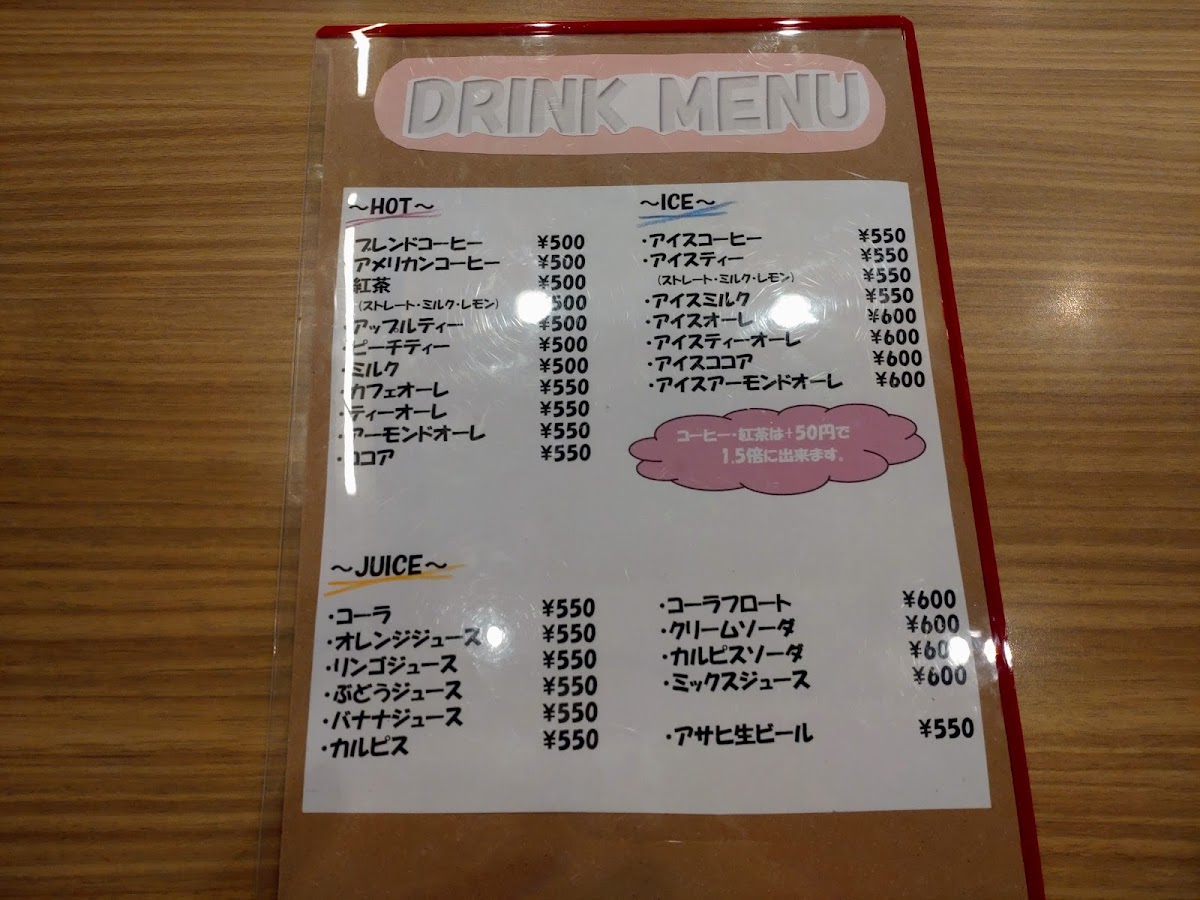 DRINK MENU
～HOT～
ブレンドコーヒー ¥500
アメリカンコーヒー ¥500
紅茶 ¥500
(ストレート・ミルク・レモン) ¥500
・アップルティー ¥500
・ピーチティー ¥500
・ミルク ¥500
・カフェオーレ ¥550
・ティーオーレ ¥550
・アーモンドオーレ ¥550
・ココア ¥550
～ICE～
・アイスコーヒー ¥550
・アイスティー ¥550
(ストレート・ミルク・レモン) ¥550
・アイスミルク ¥550
・アイスオーレ ¥600
・アイスティーオーレ ¥600
・アイスココア ¥600
・アイスアーモンドオーレ ¥600
コーヒー・紅茶は+50円で
1.5倍に出来ます。
～JUICE～
・コーラ ¥550
・オレンジジュース ¥550
・リンゴジュース ¥550
・ぶどうジュース ¥550
・バナナジュース ¥550
・カルピス ¥550
・コーラフロート ¥600
・クリームソーダ ¥600
・カルピスソーダ ¥600
・ミックスジュース ¥600
・アサヒ生ビール ¥550